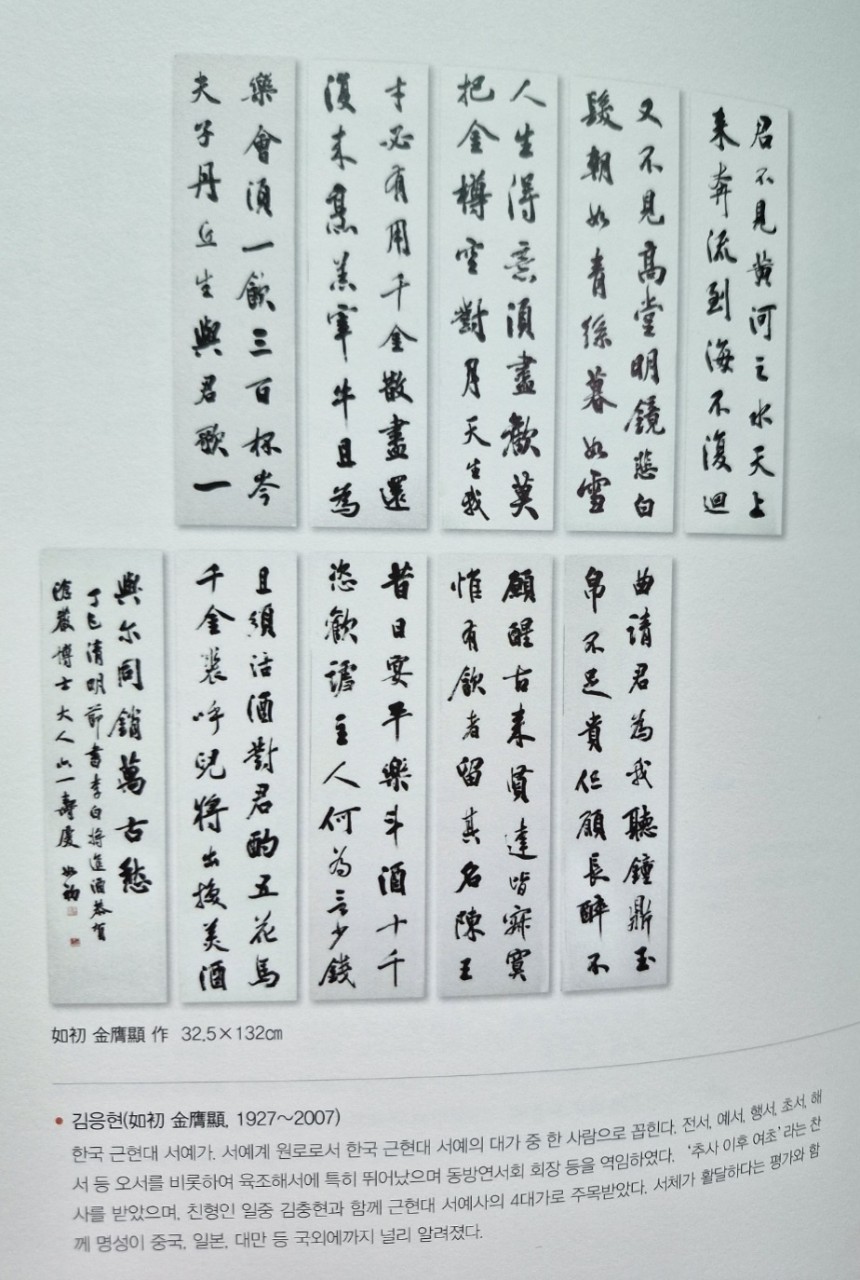 君不見黃河之水天上
来奔流到海不復迴
又不見高堂明鏡悲白
髮朝如青絲暮如雪
人生得意須盡歡莫
把金樽空對月天生我
才必有用千金散盡還
復来烹羔宰牛且為
樂會須一飲三百杯岑
夫子丹丘生與君歌一
曲請君為我聽鐘鼎玉
帛不足貴但願長醉不
願醒古来賢達皆寂寞
惟有飲者留其名陳王
昔日宴平樂斗酒十千
恣歡謔主人何為言少錢
且須沽酒對君酌五花馬
千金裘呼兒將出換美酒
與尔同銷萬古愁
丁巳清明節書李白將進酒恭賀
博士大人六一壽慶 如初
如初 金膺顯 作 32.5×132㎝
• 김응현(如初 金膺顯, 1927～2007)
한국 근현대 서예가. 서예계 원로로서 한국 근현대 서예의 대가 중 한 사람으로 꼽힌다. 전서, 예서, 행서, 초서, 해
서 등 오서를 비롯하여 육조해서에 특히 뛰어났으며 동방연서회 회장 등을 역임하였다. ‘추사 이후 여초’라는 찬
사를 받았으며, 친형인 일중 김충현과 함께 근현대 서예사의 4대가로 주목받았다. 서체가 활달하다는 평가와 함
께 명성이 중국, 일본, 대만 등 국외에까지 널리 알려졌다.